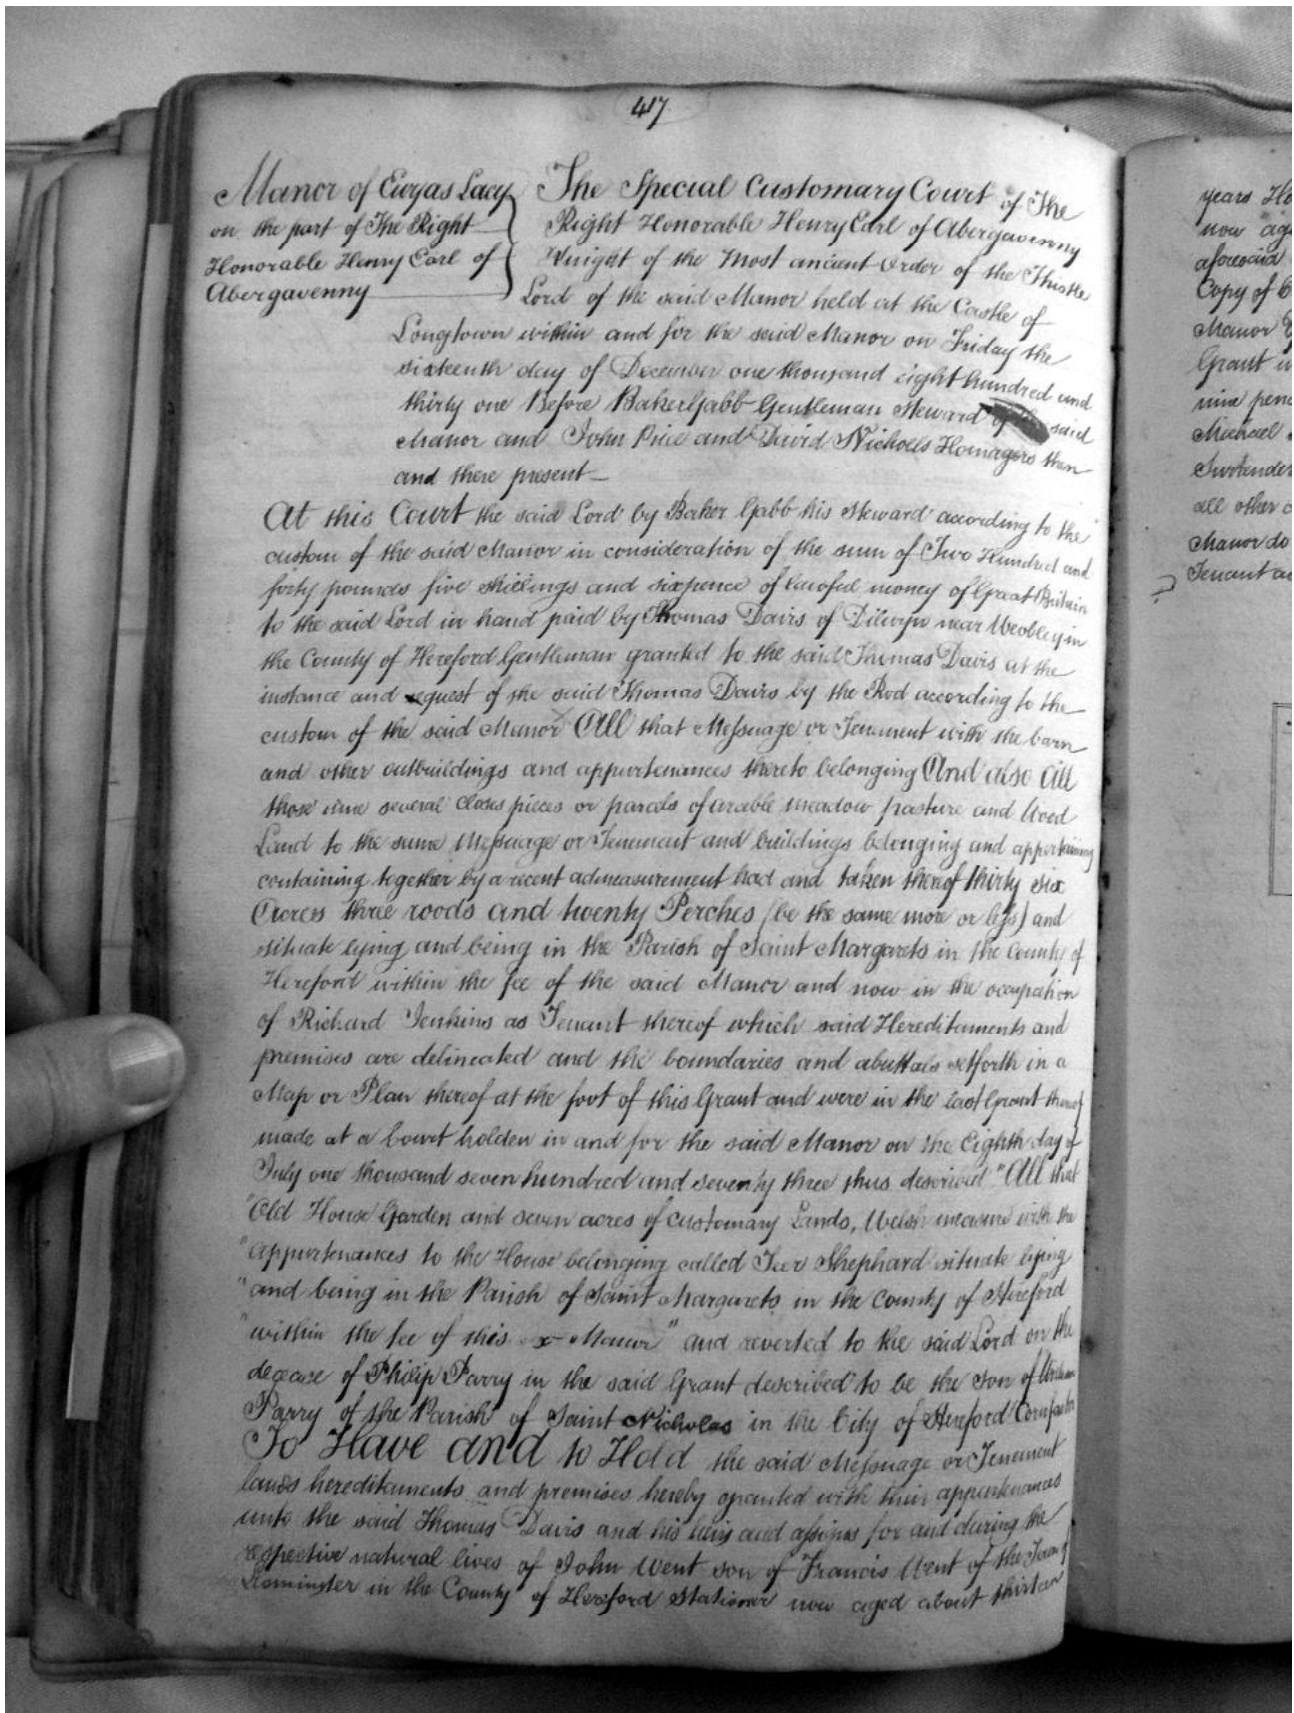 417
Manor of Ewyas Lacy
on the part of The Right
Honorable Henry Earl of
Abergavenny
The Special Customary Court of The
Right Honorable Henry Earl of Abergavenny
Knight of the Most ancient Order of the Thistle
Lord of the said Manor held at the Castle of
Longtown within and for the said Manor on Friday the
sixteenth day of December one thousand eight hundred and
thirty one Before Baker Gabb Gentleman Steward said
Manor and John Price and David Nicholls Homagers then
and there present
At this Court the said Lord by Baker Gabb his Steward according to the
custom of the said Manor in consideration of the sum of Two Hundred and
forty pounds five shillings and sixpence of lawful money of Great Britain
to the said Lord in hand paid by Thomas Davis of Dilwyn near Weobley in
the County of Hereford Gentleman granted to the said Thomas Davis at the
instance and request of the said Thomas Davis by the Rod according to the
custom of the said Manor All that Messuage or Tenement with the barn
and other outbuildings and appurtenances thereto belonging And also all
those nine several closes pieces or parcels of arable meadow pasture and Wood
Land to the same Messuage or Tenement and buildings belonging and appertaining
containing together by a recent admeasurement had and taken thereof thirty six
Acres three roods and twenty Perches (be the same more or less) and
situate lying and being in the Parish of Saint Margarets in the County of
Hereford within the fee of the said Manor and now in the occupation
of Richard Jenkins as Tenant thereof which said Hereditaments and
premises are delineated and the boundaries and abuttals set forth in a
Map or Plan thereof at the foot of this Grant and were in the last Grant thereof
made at a Court holden in and for the said Manor on the Eighth day of
July one thousand seven hundred and seventy three thus described "All that
"Old House Garden and seven acres of customary Lands, Welsh measure with the
"appurtenances to the House belonging called Teer Shephard situate lying
"and being in the Parish of Saint Margarets in the County of Hereford
"within the fee of this x Manor" and reverted to the said Lord on the
decease of Philip Parry in the said Grant described to be the son of William
Parry of the Parish of Saint Nicholas in the City of Hereford Cornfactor
To Have and to Hold the said Messuage or Tenement
lands hereditaments and premises hereby granted with their appurtenances
unto the said Thomas Davis and his heirs and assigns for and during the
respective natural lives of John Went son of Francis Went of the Town of
Leominster in the County of Hereford Stationer now aged about thirteen
years
now
aforesaid
Copy of
Manor
Grant
nine
Michael
Surrender
all other
Manor do
Tenant